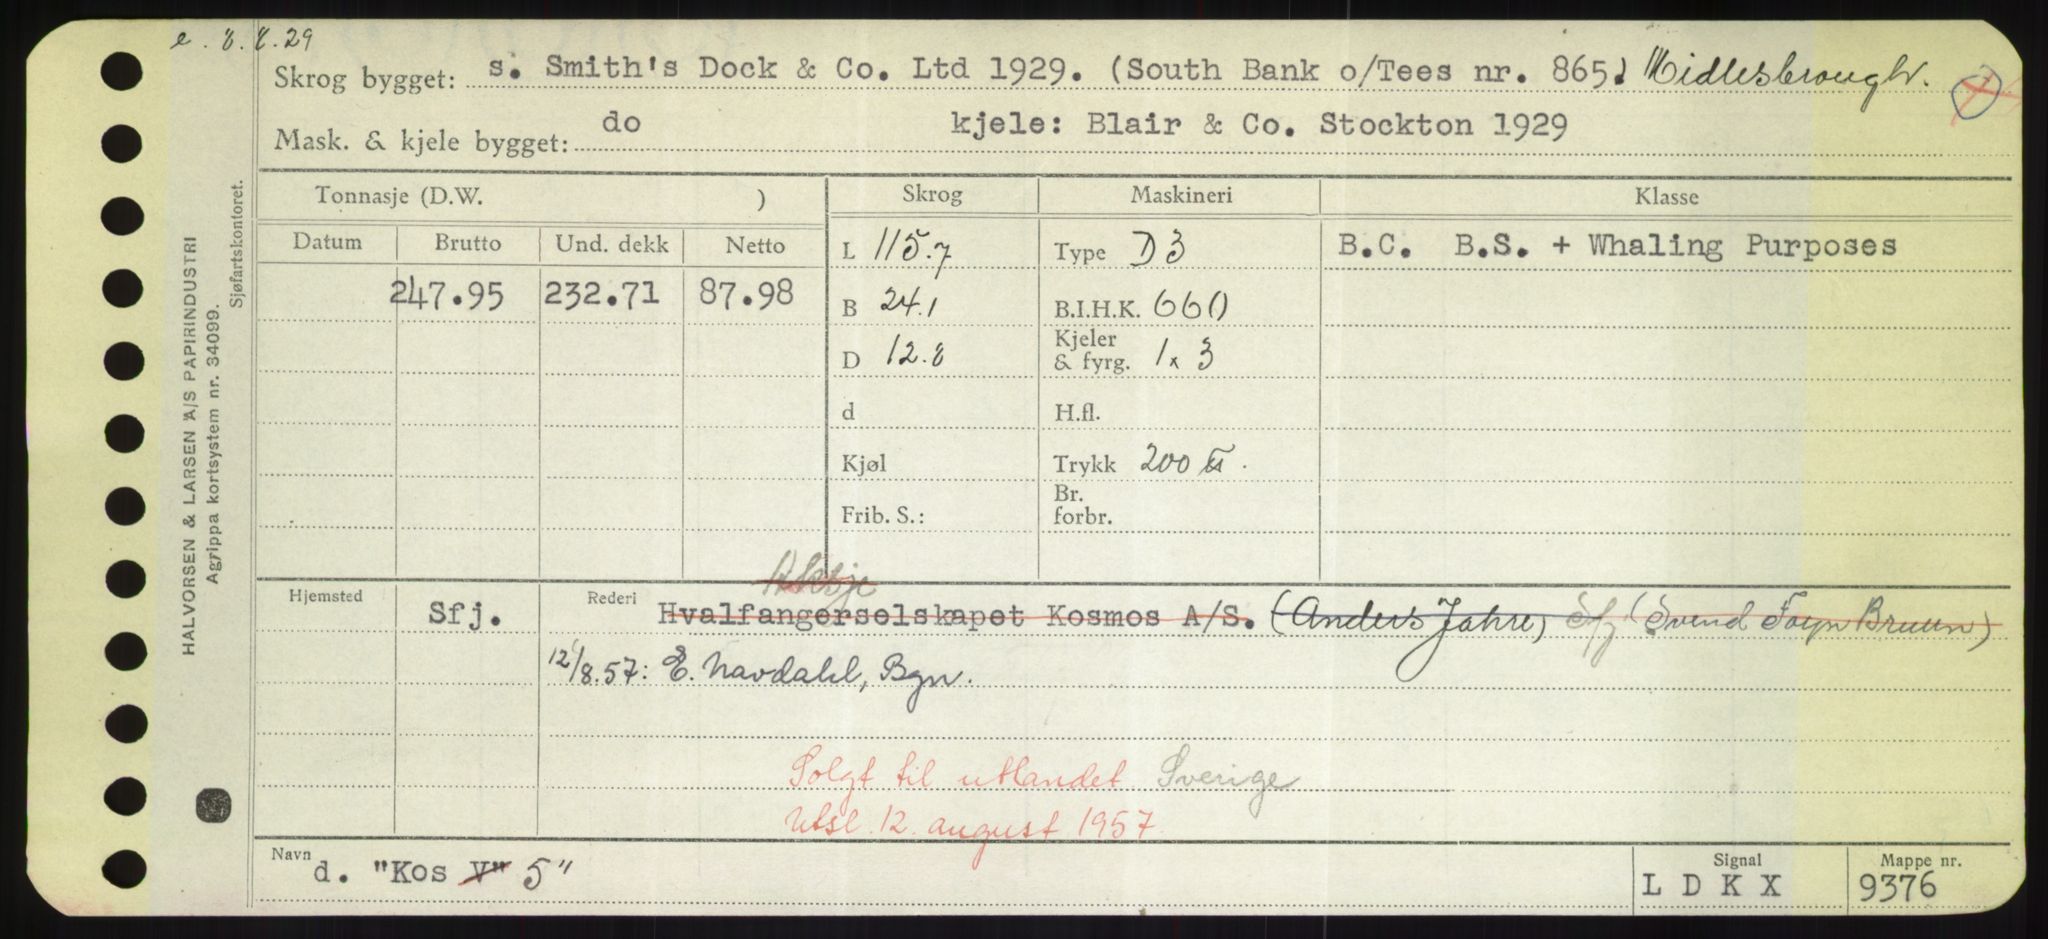 e. 8.8.29
Skrog bygget: s. Smith's Dock & Co. Ltd 1929. (South Bank o/Tees nr. 865) Midlesbrough.
Mask. & kjele bygget: do kjele: Blair & Co. Stockton 1929
Tonnasje (D.W. ) Skrog Maskineri Klasse
Datum Brutto Und. dekk Netto L 115.7 Type D 3 B.C. B.S. + Whaling Purposes
247.95 232.71 87.98 B 24.1 B.I.H.K. 660
D 12.8 Kjeler & fyrg. 1 x 3
d H.fl.
Kjøl Trykk 200 ℔.
Frib. S.: Br. forbr.
Aksje
Hjemsted Sfj. Rederi Hvalfangerselskapet Kosmos A/S. (Anders Jahre) Sfj (Svend Foyn Bruun)
12/8.57: E. Navdahl, Bgn.
Solgt til utlandet Sverige
Utsl. 12. august 1957.
Navn d. "Kos V" 5" Signal L D K X Mappe nr. 9376
HALVORSEN & LARSEN A/S PAPIRINDUSTRI
Agrippa kortsystem nr. 34099.
Sjøfartskontoret.